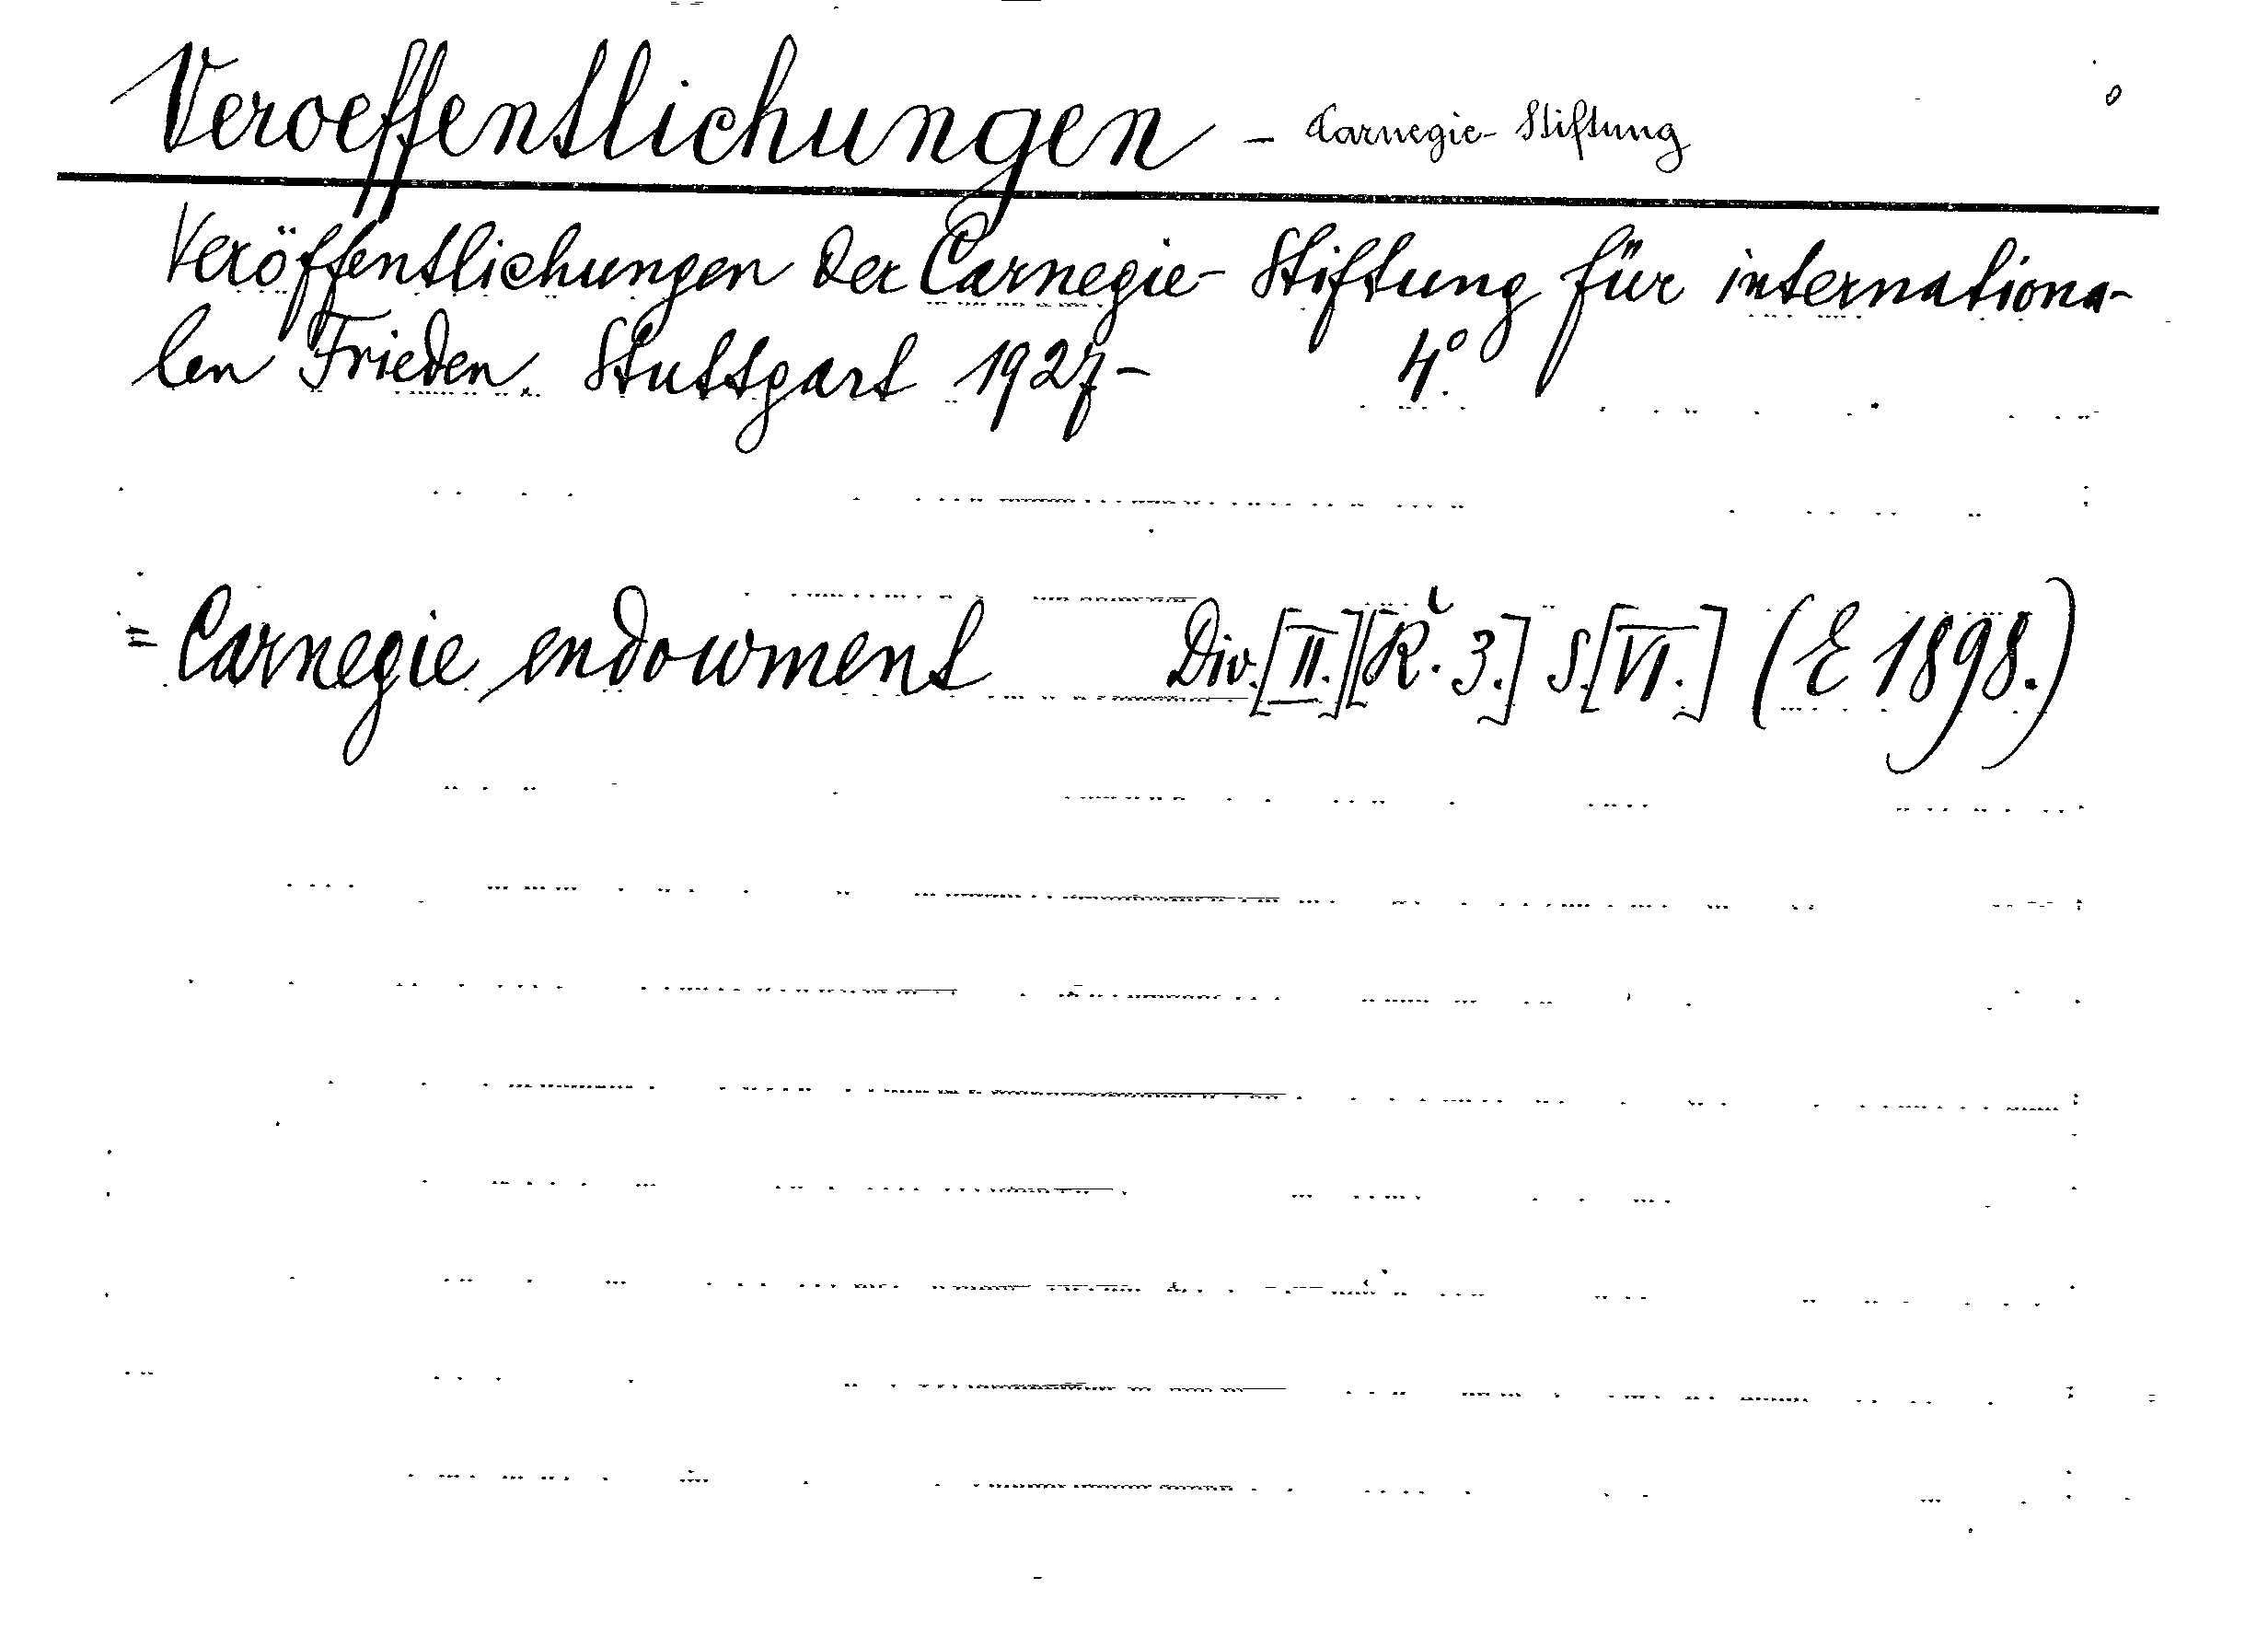 Veroeffentlichungen - Carnegie-Stiftung
Veröffentlichungen der Carnegie-Stiftung für internationa-
len Frieden. Stuttgart 1927- 4°.
= Carnegie endowment Div.[II.][R. 3.] S.[VI.] (E 1898.)